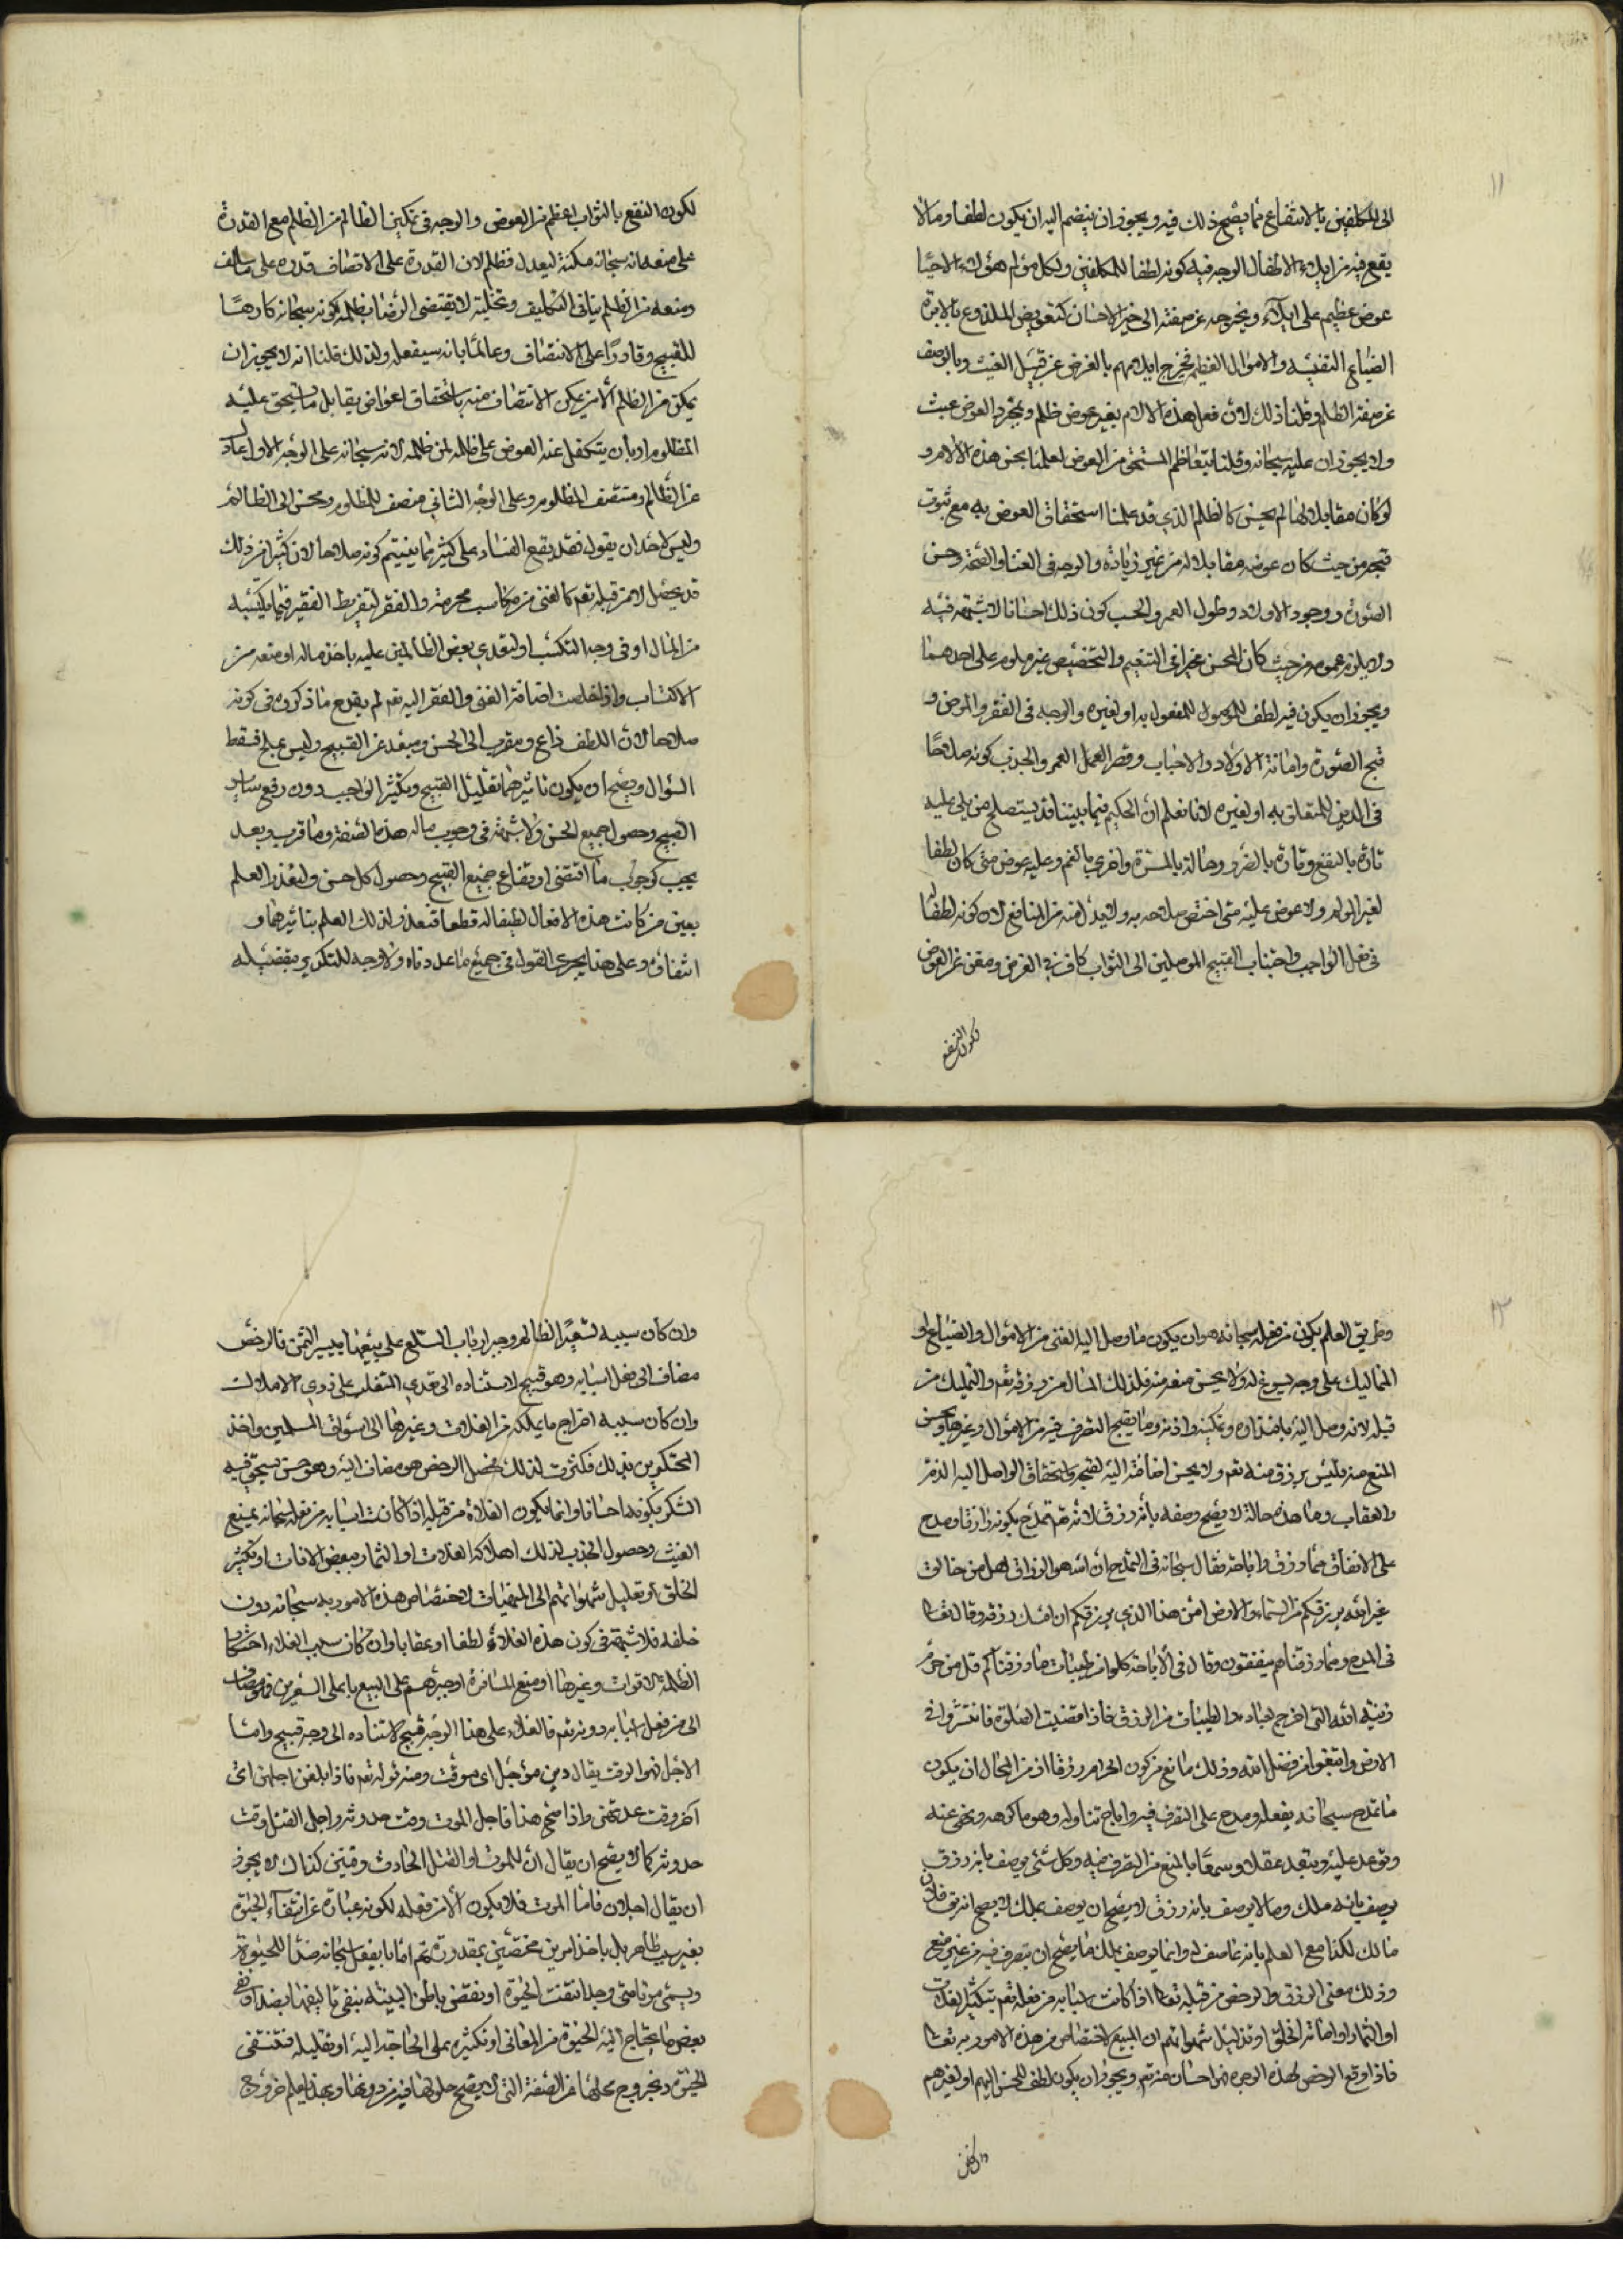 ١١
الى المكلفين بالانتفاع بما يصح ذلك فيه ويجوز ان ينضم اليه ان يكون لطفا وما لا
يقع فيه من ايلام الاطفال الوجه فيه كونه لطفا للمكلفين ولكل مؤلم هؤلاء الاحيا
عوض عظيم على ايلامه ويخرجه عن صفته الى خير الاحسان كتعويض الملذوع بالابرة
الضياع النفيسه والاموال العظيمه فخرج ايلامهم بالغرض عن قبيل العبث وبالعوض
عن صفة الظلم وقلنا ذلك لان فعل هذه الالام بغير عوض ظلم وبمجرد العوض عبث
ولا يجوزان عليه سبحانه وقلنا بتعاظم المستحق من العوض لعلمنا بحسن هذه الالام و
لو كان مقابلا لها لم يحسن كالظلم الذي قد علمنا استحقاق العوض به مع ثبوت
قبحه من حيث كان عوضه مقابلا له من غير زيادة والوجه في الغنا والصحة وحسن
الصورة ووجود الاولاد وطول العمر والخصب كون ذلك احسانا لا شبهة فيه
ولا يلزم عمومه من حيث كان المحسن مخيرا في التعميم والتخصيص غير ملوم على احدهما
ويجوز ان يكون فيه لطف للموصول للمفعول به او لغيره والوجه في الفقر والمرض و
قبح الصورة واماتة الاولاد والاحباب وقصر العمر والجدب كونه صلاحا
في الدين للمتعلق به او لغيره لانا نعلم ان الحكيم فيما بيننا قد يستصلح من يلي عليه
تارة بالنفع وتارة بالضرر وحالة بالمسرة واخرى بالغم وعليه عوض متى كان لطفا
لغير المولم ولا عوض عليه متى اختص صلاحه به ولا بدل منه من المنافع لان كونه لطفا
في فعل الواجب واجتناب القبيح الموصلين الى الثواب كاف في الغرض ومغن عن العوض
لكون النفع
لكون النفع بالثواب اعظم من العوض والوجه في تمكين الظالم من الظلم مع القدرة
على منعه انه سبحانه مكنه ليعدل فظلم لان القدرة على الانصاف قدرة على خلافه
ومنعه من الظلم ينافي التكليف وتخليته لا يقتضى الرضا بظلمه كونه سبحانه كارها
للقبيح وقادرا على الانتصاف وعالما بانه سيفعله ولذلك قلنا انه لا يجوز ان
يمكن من الظلم الا من يمكن الانتصاف منه باستحقاق اعواض يقابل ما يستحق عليه
المظلوم او بان يتكفل عنه العوض على ظلمه لمن ظلمه لانه سبحانه على الوجه الاول عادل
عن الظالم ومنتصف للمظلوم وعلى الوجه الثاني منصف للمظلوم ومحسن الى الظالم
وليس لاحد ان يقول فقد يقع الفساد على كثير مما بينتم كونه صلاحا لان كثيرا من ذلك
قد يحصل لا من قبله تعم كالغنى من مكاسب محرمة والفقر لتفريط الفقير فيما يكتسبه
من المال او في وجه التكسب او لتعدي بعض الظالمين عليه باخذ ماله او منعه من
الاكتساب واذا خلصت اضافة الغنى والفقر اليه تعم لم يقدح ما ذكروه في كونه
صلاحا لان اللطف داع ومقرب الى الحسن ومبعد عن القبيح وليس بملج فسقط
السؤال ويصح ان يكون تاثيرهما تقليل القبيح وتكثير الواجب دون رفع ساير
القبيح وحصول جميع الحسن ولا شبهة في وجوب ماله هذه الصفة وما قرب وبعد
يجب كوجوب ما اقتضى ارتفاع جميع القبيح وحصول كل حسن ولتعذر العلم
بعين من كانت هذه الافعال لطفا له قطعا فتعذر لذلك العلم بتاثيرها و
انتفائه وعلى هذا يجرى القول في جميع ما عددناه ولا وجه للتكرير بتفصيله
١٢
وطريق العلم بكون من فعله سبحانه هو ان يكون ما وصل اليه الغنى من الاموال والضياع او
المماليك على وجه يسوغ له ولا يحسن منعه منه فلذلك المال من رزقه تعم والتمليك من
قبله لانه وصل اليه باقداره وتمكينه واذنه وما يقبح التصرف فيه من الاموال وغيرها ويحسن
المنع منه فليس برزق منه تعم ولا يحسن اضافته اليه لقبحه واستحقاق الواصل اليه الذم
والعقاب وما هذه حاله لا يصح وصفه بانه رزق لانه تعم تمدح بكونه رازقا ومدح
على الانفاق مما رزق واباحه فقال سبحانه في التمدح ان الله هو الرزاق هل من خالق
غير الله يرزقكم من السماء والارض امن هذا الذي يرزقكم ان امسك رزقه وقال تعا
في المدح ومما رزقناهم ينفقون وقال في الاباحة كلوا من طيبات ما رزقناكم قل من حرم
زينة الله التى اخرج لعباده والطيبات من الرزق فاذا قضيت الصلوة فانتشروا في
الارض وابتغوا من فضل الله وذلك مانع من كون الحرام رزقا اذ من المحال ان يكون
ما تمدح سبحانه بفعله ومدح على التصرف فيه واباح تناوله وهو ما كرهه ونهى عنه
وتوعد عليه وتعبد عقلا وسمعا بالمنع من التصرف فيه وكل شئ يوصف بانه رزق
يوصف بانه ملك وما لا يوصف بانه رزق لا يصح ان يوصف بملك لا يصح انه رزق فلان
مالك لكذا مع العلم بانه غاصب له وانما يوصف بملك ما يصح ان يتصرف فيه من غير منع
وذلك معنى الرزق والرخص من قبله تعا اذا كانت اسبابه من فعله تعم بتكثير الغلات
او الثمار او اماتة الخلق او تقليل شهواتهم ان المبيع لاختصاص هذه الامور به تعا
فاذا وقع الرخص لهذه الوجوه فهو احسان منه تعم ويجوز ان يكون لطف للمحسن اليهم او لغيرهم
وان كان
وان كان سببه تسعير الظالم وجبر ارباب السلع على بيعها بيسير الثمن فالرخص
مضاف الى فعل اسبابه وهو قبيح لاستناده الى تعدي المتغلب على ذوي الاملاك
وان كان سببه اخراج ما يملكه من الغلات وغيرها الى اسواق المسلمين واخذ
المحتكرين بذلك فكثرت لذلك فحصل الرخص هو مضاف اليه وهو حسن يستحق فيه
الشكر بكونه احسانا وانما يكون الغلاء من قبله اذا كانت اسبابه من فعله سبحانه بمنع
الغيث وحصول الجدب لذلك اهلاكه الغلات او الثمار ببعض الافات او تكثير
الخلق او تعليل شهواتهم الى المبيعات لاختصاص هذه الامور به سبحانه دون
خلقه فلا شبهة في كون هذه الغلاء لطفا او عقابا وان كان سبب الغلاء احتكار
الظلمة الاقوات وغيرها او منع المسافرة او جبرهم على البيع باعلى السعرين فهو مضاف
الى من فعل اسبابه دونه تعم فالغلاء على هذا الوجه قبيح لاستناده الى وجه قبيح واما
الاجل فهو الوقت يقال دين مؤجل اى موقت ومنه قوله تعم فاذا بلغن اجلهن اى
آخر وقت عدتهن واذا صح هذا فاجل الموت وقت حدوثه واجل القتل وقت
حدوثه كما لا يصح ان يقال ان للموت او القتل الحادث وقتين كذلك لا يجوز
ان يقال اجلان فاما الموت فلا يكون الا من فعله لكونه عبارة عن انتفاء الحيوة
بغير سبب ظاهر بل باحد امرين مختصين بمقدوره تعم اما بان يفعل سبحانه ضدا للحيوة
ويسمى موتا متى وجد انتفت الحيوة او بنقض باطن البنية بنفى تاليفها بضد او نفى
بعض ما يحتاج اليه الحيوة من المعانى او تكثيره على الحاجة اليه او تقليله فتنتفى
الحيوة بخروج محلها من الصفة التى لا يصح حلولها فيه من دونها وبهذا يعلم خروج